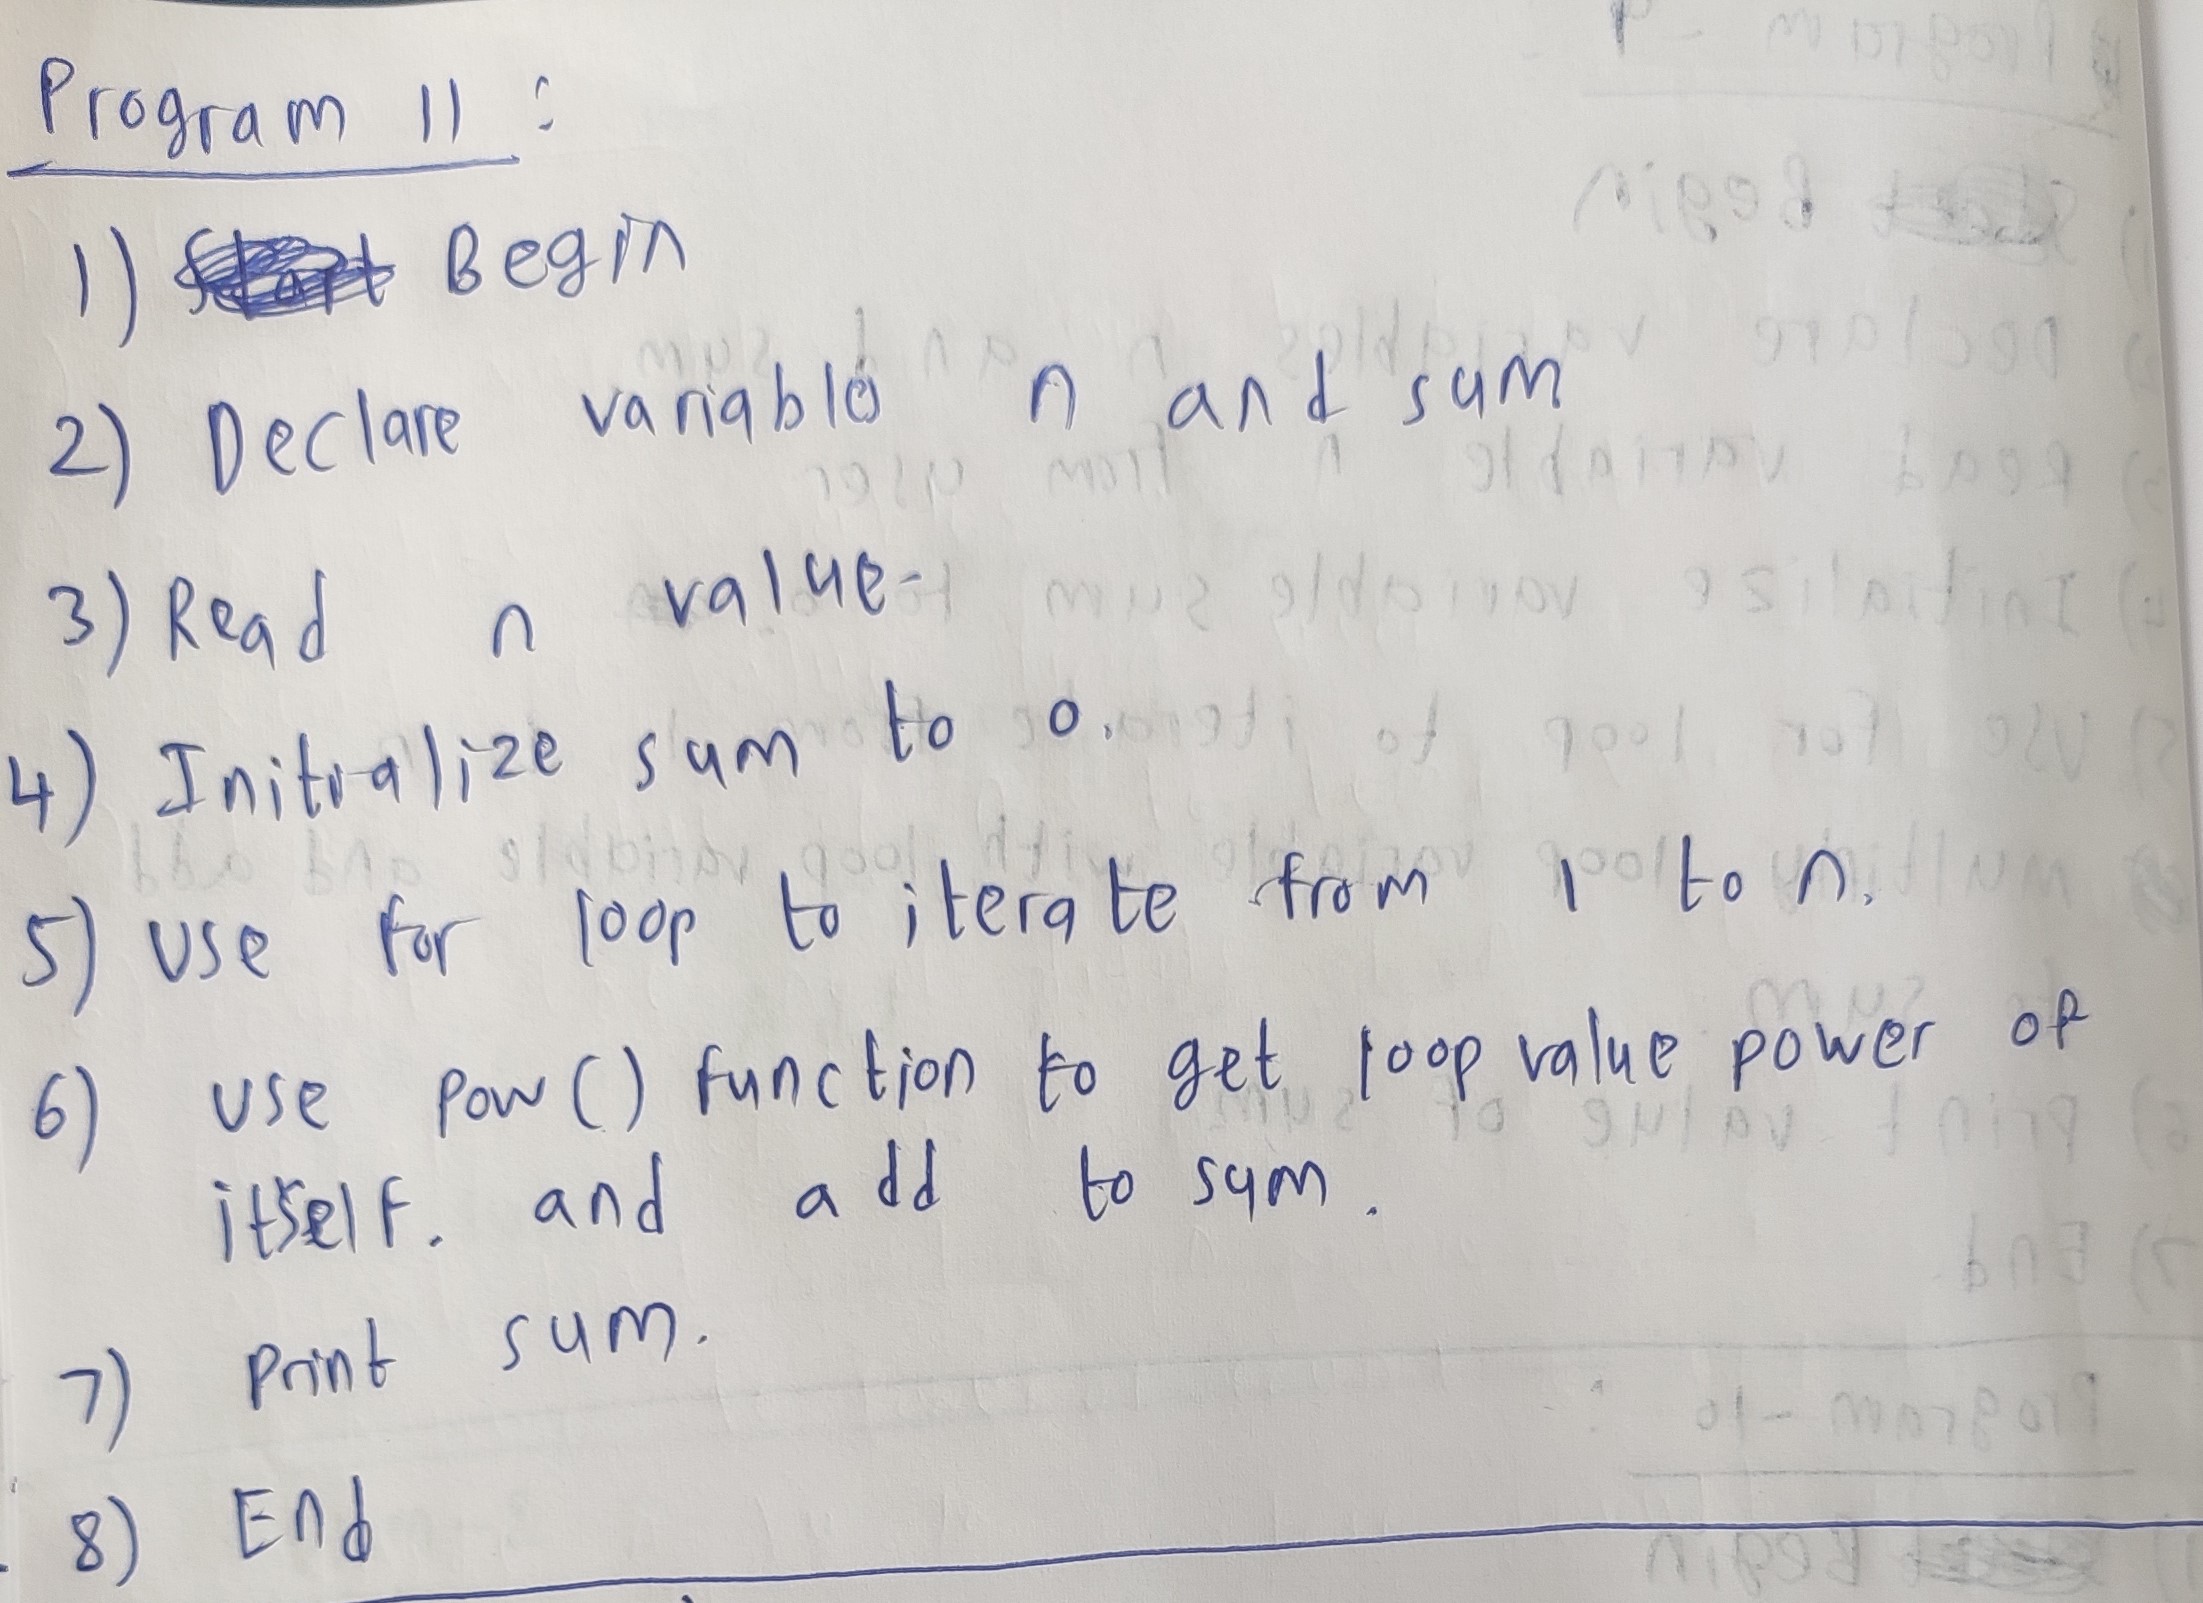 Program 11 :
1) Begin
2) Declare variable n and sum
3) Read n value
4) Initialize sum to 0.
5) Use for loop to iterate from 1 to n.
6) Use pow() function to get loop value power of
itself. and add to sum.
7) Print sum.
8) End